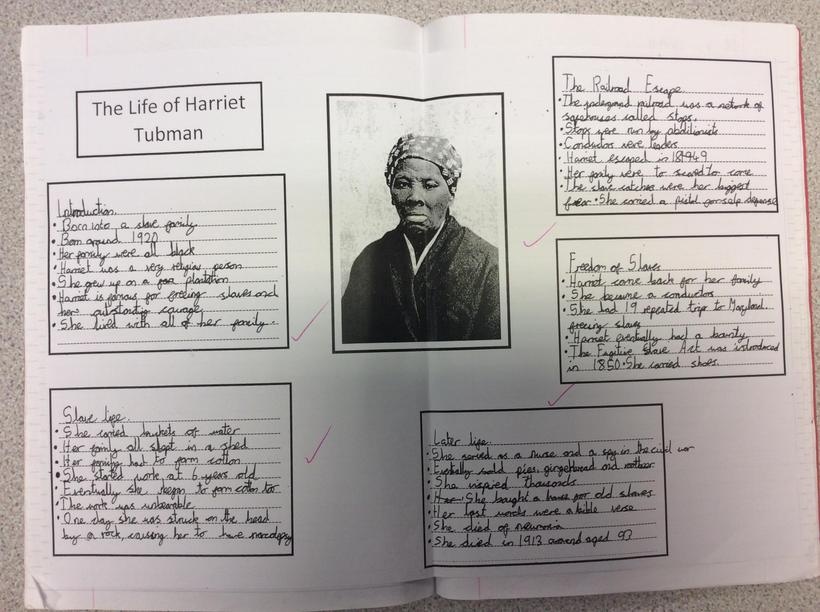 The Life of Harriet
Tubman
Introduction.
• Born into a slave family.
• Born around 1920
• Her family were all black
• Harriet was a very religius person
• She grew up on a plantation
• Harriet is famous for freeing slaves and
her outstanding courage.
• She lived with all of her family.
Slave life.
• She carried buckets of water
• Her family all slept in a shed
• Her family had to farm cotton
• She stared work at 6 years old
• Eventually she to farm cotton too
• The work was unbearable
• One day she was struck on the head
by a rock, causing her to have
The Railroad Escape.
• The railroad was a network of
safehouses called stops.
• Stops were run by abolitionists
• Conductors were leaders
• Harriet escaped in 1849
• Her family were to scared to come
• The slave catches were her biggest
fear • She carried a pistol for self
Freedom of Slaves
• Harriet come back for her family
• She became a conductors
• She had 19 repeated trips to
freeing slaves
• Harriet eventually had a bounty
• The Fugitive Slave Act was introduced
in 1850 • She carried shoes.
Later life.
• She served as a nurse and a spy in the civil war
• sold pies, gingebread and
• She inspired thousands
• She bought a house for old slaves
• Her last words were a bible verse
• She died of
• She died in 1913 aged